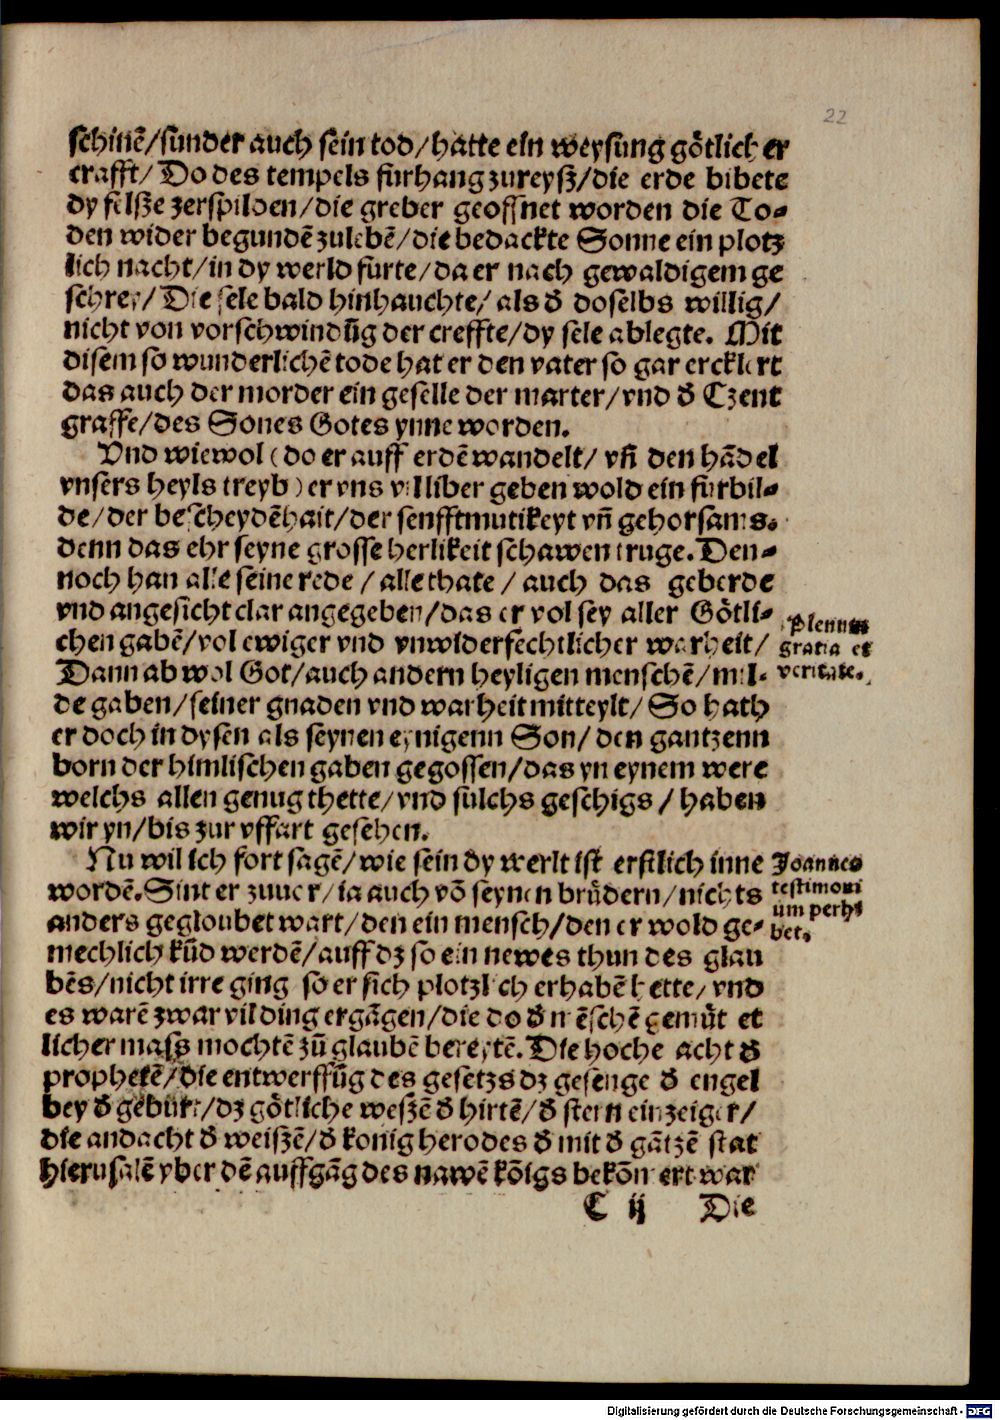 22
schinē/sunder auch sein tod/hatte ein weysung götlicher
crafft/ Do des tempels furhang zureysz/die erde bibete
dy felsze zerspilden/die greber geoffnet worden die To-
den wider begundē zulebē/die bedackte Sonne ein plotz
lich nacht/in dy werld furte/da er nach gewaldigem ge
schrey/ Die sele bald hinhauchte/ als ð doselbs willig/
nicht von vorschwindūg der creffte/dy sele ablegte. Mit
disem so wunderlichē tode hat er den vater so gar ercklert
das auch der morder ein geselle der marter/vnd ð Czent
graffe/des Sones Gotes ynne worden.
Vnd wiewol (do er auff erdē wandelt/ vn̄ den hādel
vnsers heyls treyb) er vns villiber geben wold ein furbil-
de/der bescheydēhait/der senfftmutikeyt vn̄ gehorsams.
denn das ehr seyne grosse herlikeit schawen truge. Den-
noch han alle seine rede / alle thate / auch das geberde
vnd angesicht clar angegeben/das er vol sey aller Götli-
chen gabē/vol ewiger vnd vnwiderfechtlicher warheit/
Dann ab wol Got/auch andern heyligen menschē/mil-
de gaben/seiner gnaden vnd warheit mitteylt/ So hath
er doch in dysen als seynen eynigenn Son/ den gantzenn
born der himlischen gaben gegossen/das yn eynem were
welchs allen genug thette/vnd sulchs geschigs / haben
wir yn/bis zur vffart gesehen.
Plennus
gratia et
veritate.
Nu wil ich fort sagē/wie sein dy werlt ist erstlich inne
wordē. Sint er zuuer/ia auch vō seynen brüdern/nichts
anders gegloubet wart/den ein mensch/den er wold ge-
mechlich kūd werdē/auff dz so ein newes thun des glau
bēs/nicht irre ging so er sich plotzlich erhabē hette/vnd
es warē zwar vil ding ergāgen/die do ð mēschē gemüt et
licher mass mochtē zū glaubē bereytē. Die hoche acht ð
prophetē/die entwerffūg des gesetzs dz gesenge ð engel
bey ð gebūrt/dz götliche weszē ð hirtē/ð stern einzeiger/
die andacht ð weiszē/ð konig herodes ð mit ð gātzē stat
Hierusalē yber dē auffgāg des nawē kōigs bekōmert war
Joannes
testimoni
um perhi
bet.
C ij Die
Digitalisierung gefördert durch die Deutsche Forschungsgemeinschaft - DFG